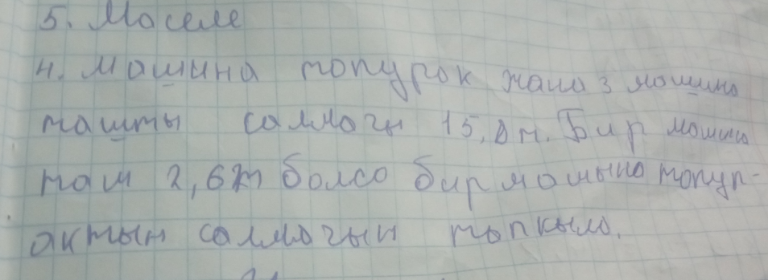 5. Маселе
4. Машина топурак жана 3 машина
ташты салмагы 15,8 т. Бир машина
таш 2,6т болсо бир машына топур-
актын салмагын тапкыла.